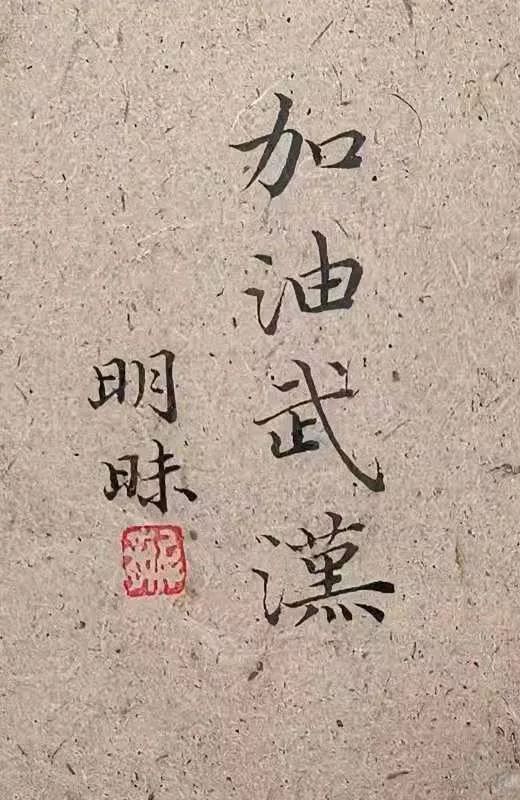 加油武漢
明昧